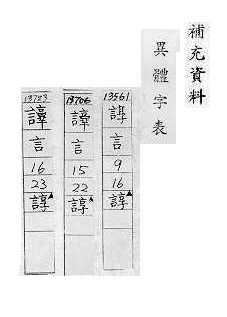 補充資料
異體字表
13561
言
9
16
諄▲
13706
言
15
22
諄▲
13723
言
16
23
諄▲